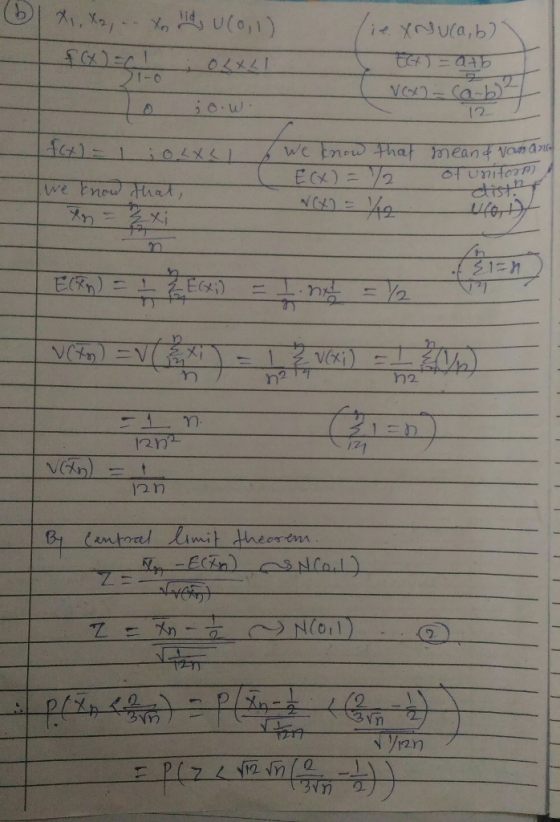 (b) x₁, x₂, ... xₙ iid~ U(0,1) (i.e. X~U(a,b)
f(x) = { 1/(1-0) ; 0<x<1 E(x) = (a+b)/2
0 ; o.w. V(x) = (a-b)²/12 )
f(x) = 1 ; 0<x<1 (we know that mean & variance
E(x) = 1/2 of uniform
we know that, V(x) = 1/12 dist.ⁿ U(0,1))
x̄ₙ = Σᵢ₌₁ⁿ xi / n
E(x̄ₙ) = 1/n Σᵢ₌₁ⁿ E(xi) = 1/n · n × 1/2 = 1/2 ∵ (Σᵢ₌₁ⁿ 1 = n)
V(x̄ₙ) = V(Σᵢ₌₁ⁿ xi / n) = 1/n² Σᵢ₌₁ⁿ V(xi) = 1/n² Σᵢ₌₁ⁿ (1/12)
= 1/(12n²) n (Σᵢ₌₁ⁿ 1 = n)
V(x̄ₙ) = 1/(12n)
By central limit theorem.
Z = (x̄ₙ - E(x̄ₙ))/√V(x̄ₙ) ~ N(0,1)
Z = (x̄ₙ - 1/2)/√(1/12n) ~ N(0,1) ... (2)
∴ P(x̄ₙ < 2/(3√n)) = P( (x̄ₙ - 1/2)/√(1/12n) < (2/(3√n) - 1/2)/√(1/12n) )
= P(Z < √12 √n (2/(3√n) - 1/2))